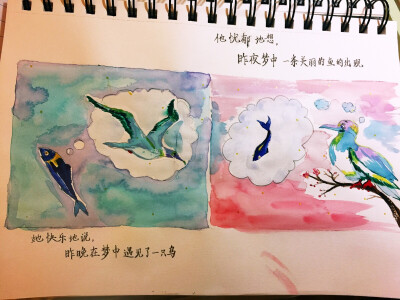 他忧郁地想,
昨夜梦中一条美丽的鱼的出现.
她快乐地说,
昨晚在梦中遇见了一只鸟